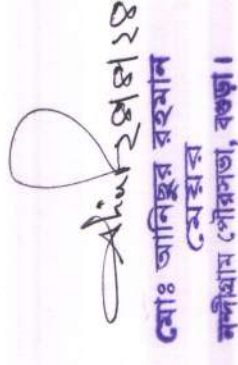 মোঃ আনিছুর রহমান
মেয়র
নন্দীগ্রাম পৌরসভা, বগুড়া।